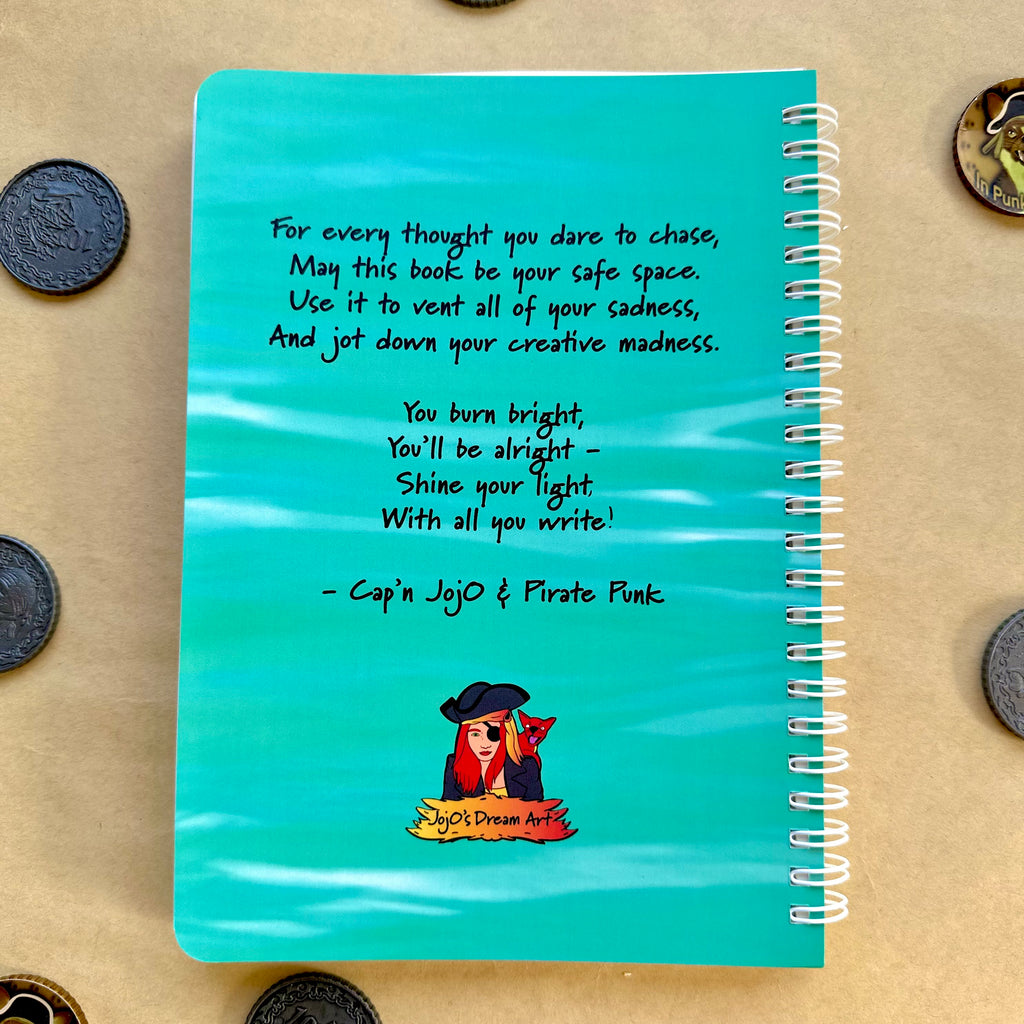 For every thought you dare to chase,
May this book be your safe space.
Use it to vent all of your sadness,
And jot down your creative madness.
You burn bright,
You'll be alright –
Shine your light,
With all you write!
– Cap'n JojO & Pirate Punk
JojO's Dream Art
In Punk